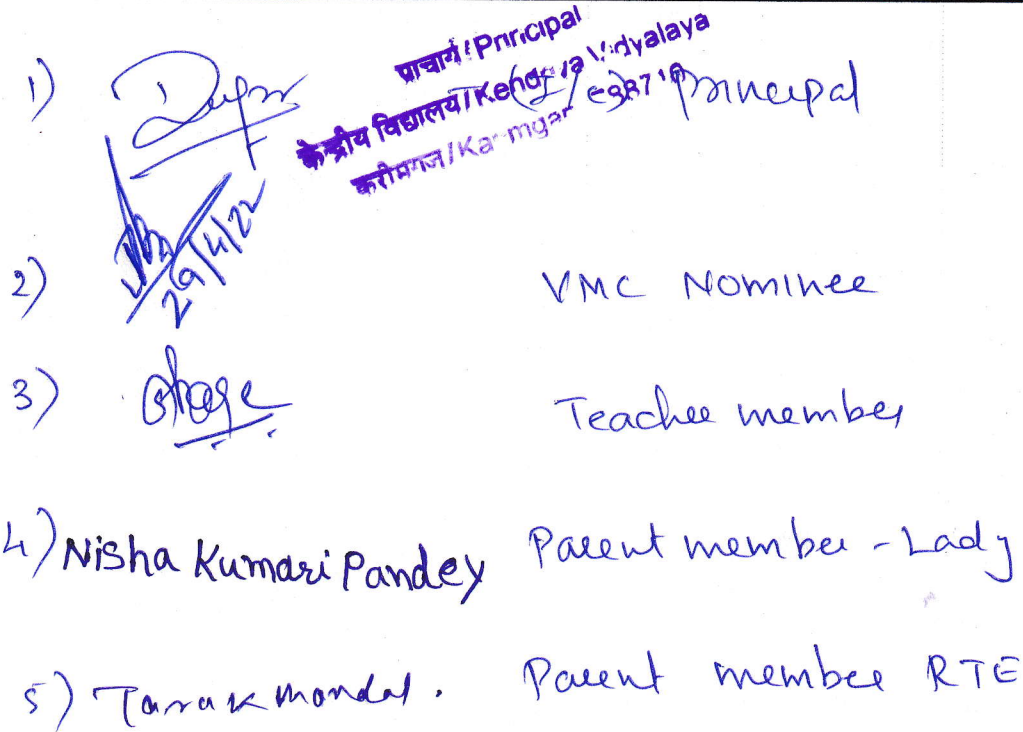 प्राचार्य/Principal
केन्द्रीय विद्यालय/Kendriya Vidyalaya
करीमगंज/Karimganj
1) (I/c) Principal
29/4/22
2) VMC Nominee
3) Teacher member
4) Nisha Kumari Pandey Parent member - Lady
5) Tarak Mondal. Parent member RTE